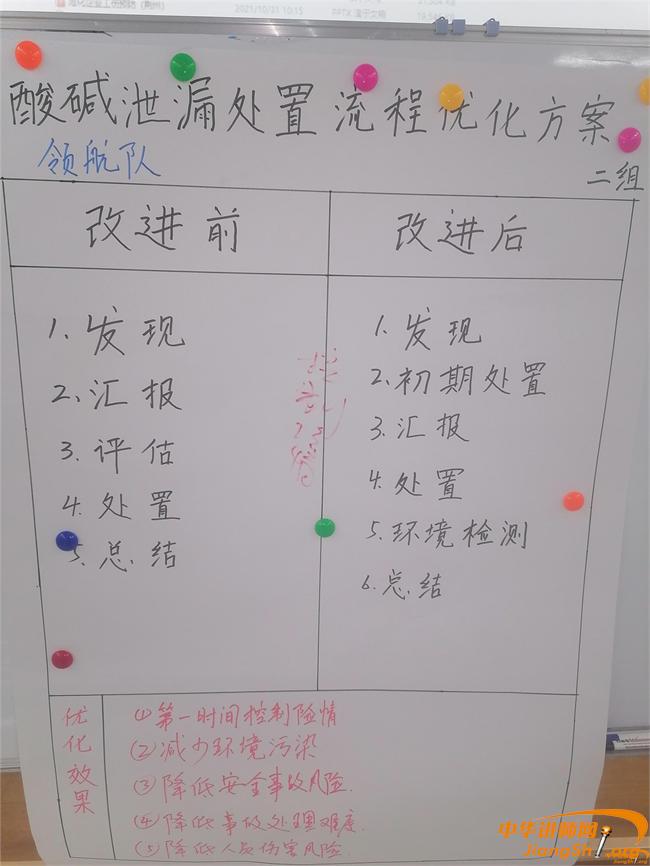 2021/10/31 10:15
PPTX 演示文稿
酸碱泄漏处置流程优化方案
领航队
二组
改进前
改进后
1. 发现
2. 汇报
3. 评估
4. 处置
5. 总结
1. 发现
2. 初期处置
3. 汇报
4. 处置
5. 环境检测
6. 总结
优化效果
① 第一时间控制险情
② 减少环境污染
③ 降低安全事故风险.
④ 降低事故处理难度.
⑤ 降低人员伤害风险.
中华讲师网
JiangShi.org